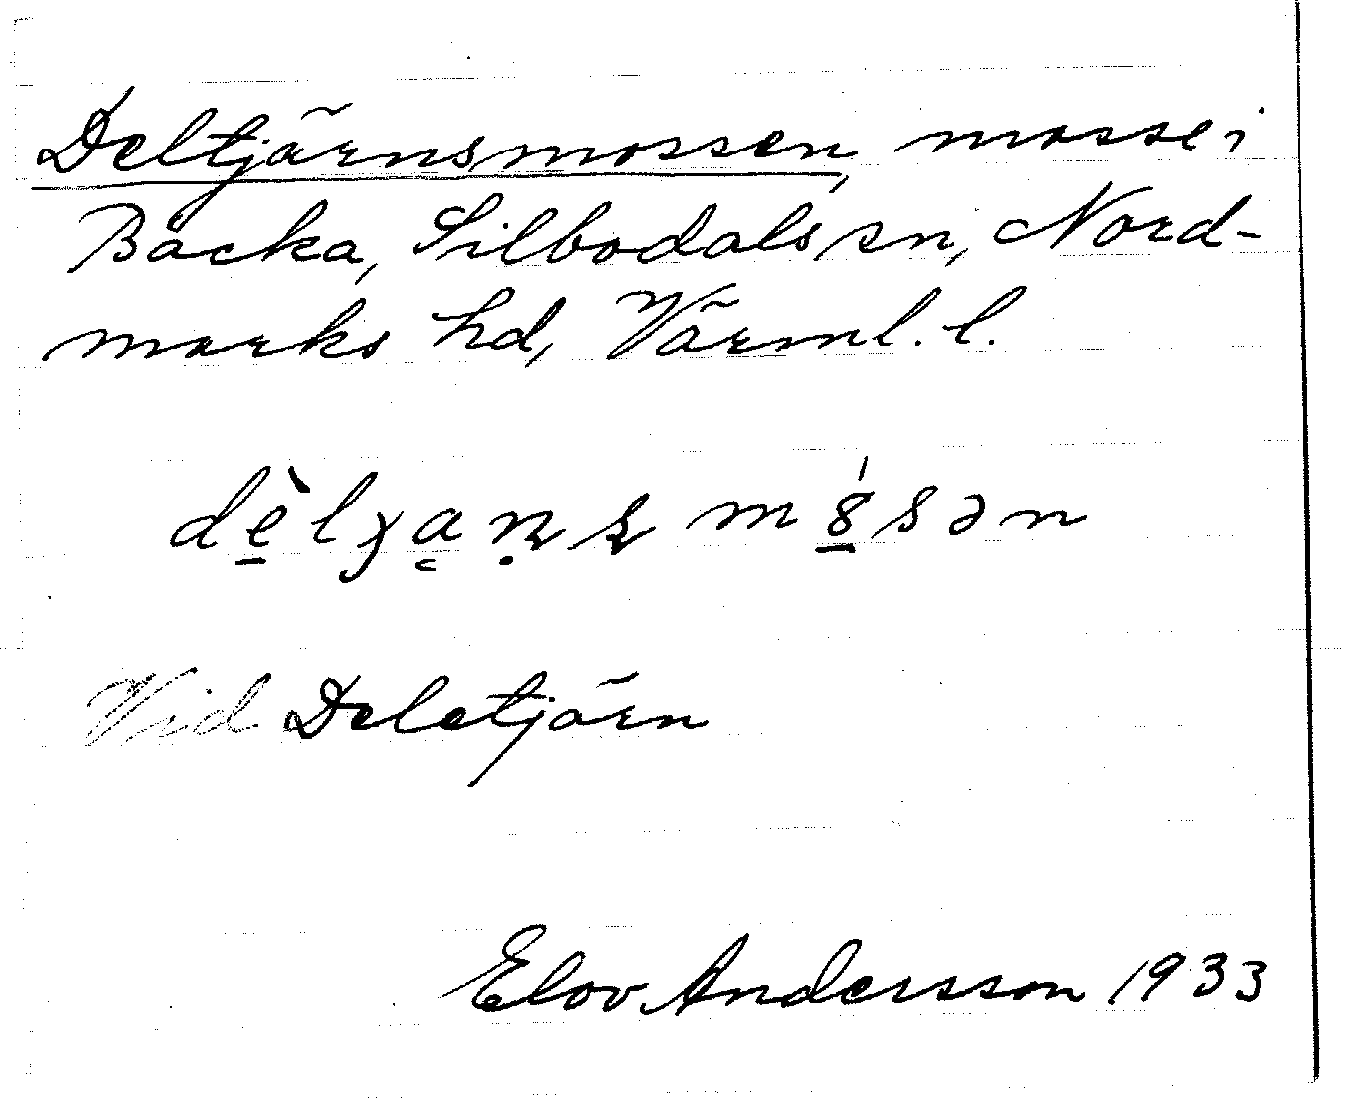 Deltjärnsmossen, mosse i
Backa, Silbodals sn, Nord-
marks hd, Värml. l.
Vid Deletjärn
Elov Andersson 1933